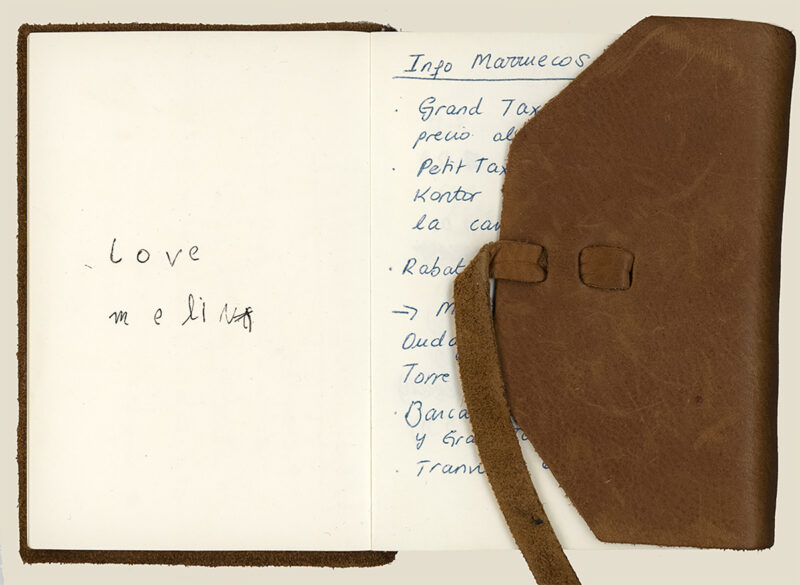 Love
melina
Info Marruecos
· Grand Tax
precio al
· Petit Tax
Kontor
la
· Rabat
→ M
Torre
· Barca
y Gra